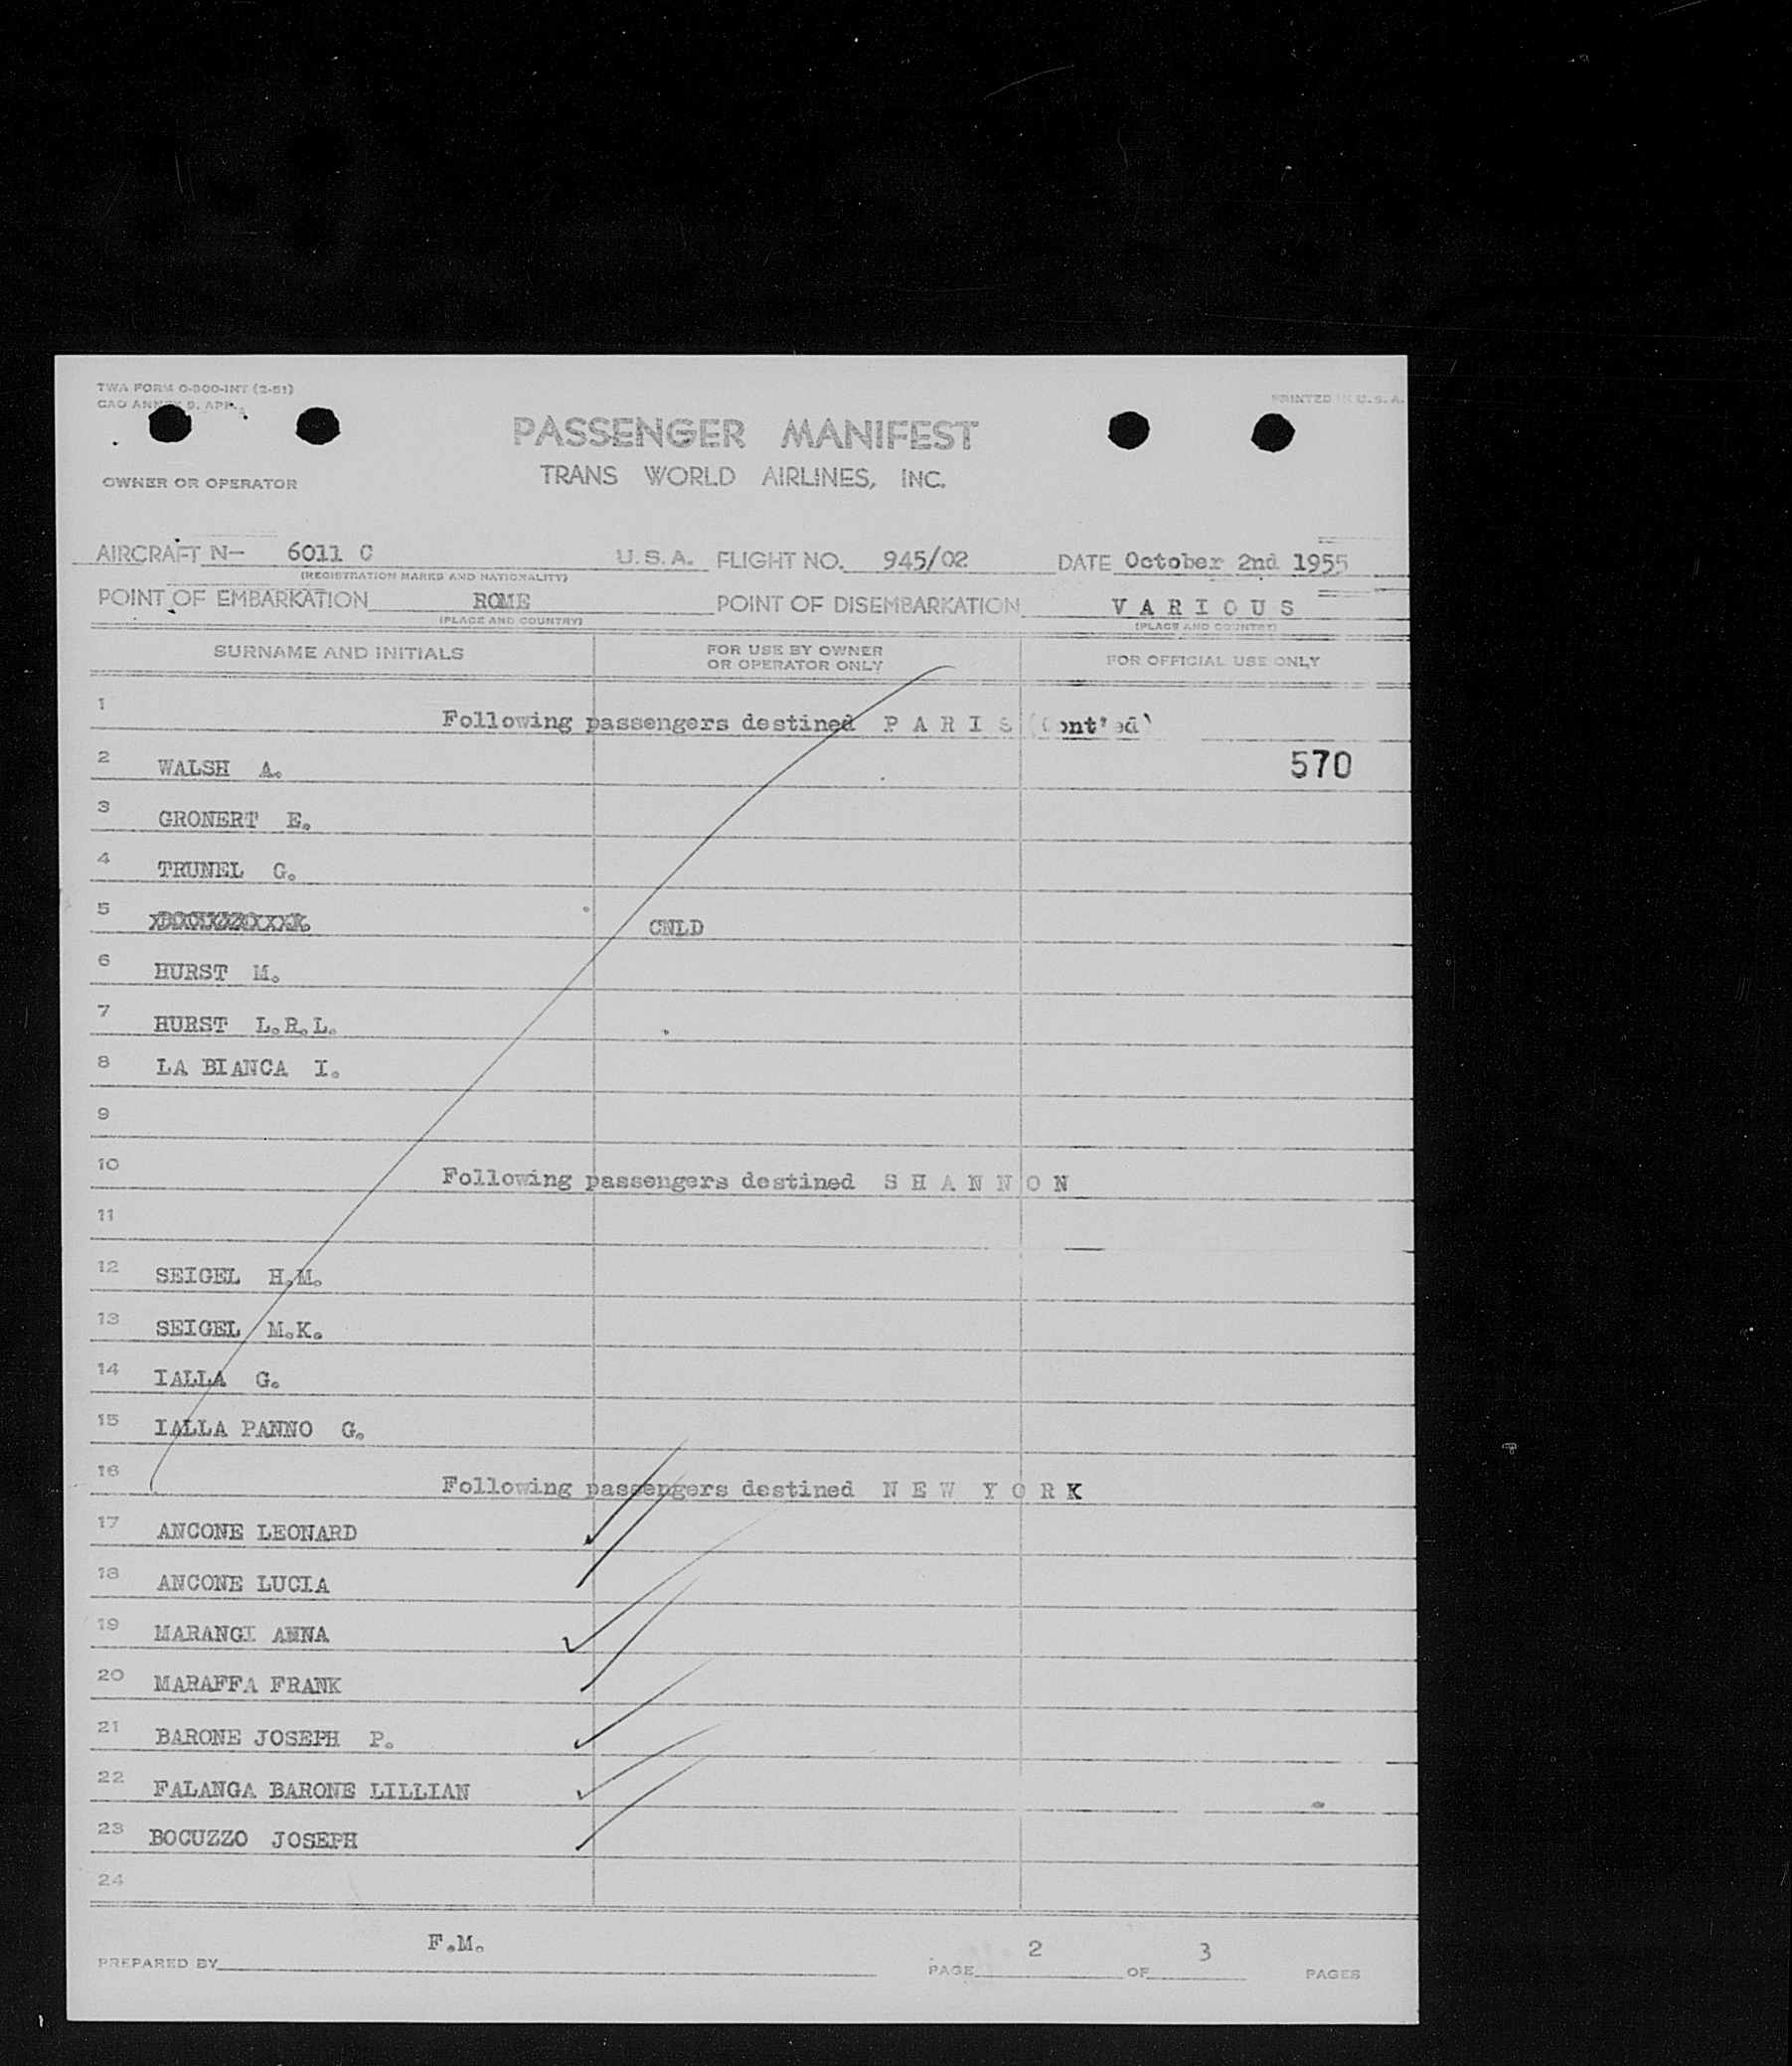 TWA FORM O-900-INT (2-51)
PRINTED IN U.S.A.
PASSENGER MANIFEST
TRANS WORLD AIRLINES, INC.
OWNER OR OPERATOR
AIRCRAFT N- 6011 C U.S.A. FLIGHT NO. 945/02 DATE October 2nd 1955
(REGISTRATION MARKS AND NATIONALITY)
POINT OF EMBARKATION ROME POINT OF DISEMBARKATION V A R I O U S
(PLACE AND COUNTRY) (PLACE AND COUNTRY)
SURNAME AND INITIALS FOR USE BY OWNER OR OPERATOR ONLY FOR OFFICIAL USE ONLY
1 Following passengers destined P A R I S (Cont'ed)
2 WALSH A. 570
3 GRONERT E.
4 TRUNEL G.
5 CNLD
6 HURST M.
7 HURST L.R.L.
8 LA BIANCA I.
9
10 Following passengers destined S H A N N O N
11
12 SEIGEL H.M.
13 SEIGEL M.K.
14 IALLA G.
15 IALLA PANNO G.
16 Following passengers destined N E W Y O R K
17 ANCONE LEONARD
18 ANCONE LUCIA
19 MARANGI ANNA
20 MARAFFA FRANK
21 BARONE JOSEPH P.
22 FALANGA BARONE LILLIAN
23 BOCUZZO JOSEPH
24
PREPARED BY F.M. PAGE 2 OF 3 PAGES